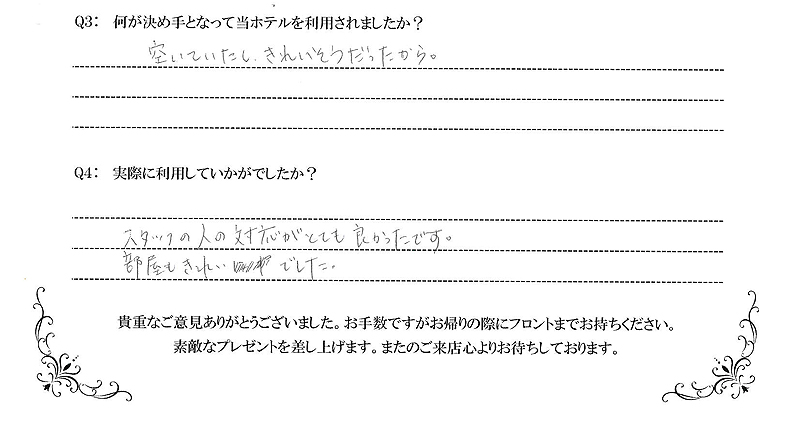 Q3: 何が決め手となって当ホテルを利用されましたか?
空いていたし、きれいそうだったから。
Q4: 実際に利用していかがでしたか?
スタッフの人の対応がとても良かったです。
部屋もきれいでした。
貴重なご意見ありがとうございました。お手数ですがお帰りの際にフロントまでお持ちください。
素敵なプレゼントを差し上げます。またのご来店心よりお待ちしております。